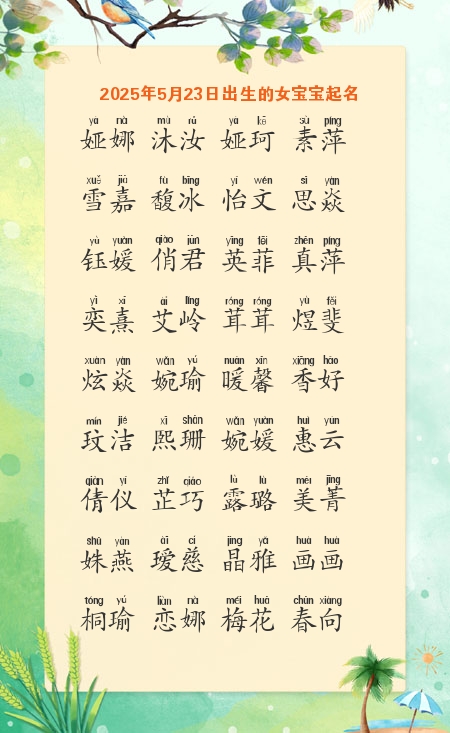 2025年5月23日出生的女宝宝起名
yà nà mù rǔ yà kē sù píng
娅娜 沐汝 娅珂 素萍
xuě jiā fù bīng yí wén sī yàn
雪嘉 馥冰 怡文 思焱
yù yuàn qiào jūn yīng fēi zhēn píng
钰媛 俏君 英菲 真萍
yì xī ài lǐng róng róng yù fěi
奕熹 艾岭 茸茸 煜斐
xuàn yàn wǎn yú nuǎn xīn xiāng hǎo
炫焱 婉瑜 暖馨 香好
mín jié xī shān wǎn yuàn huì yún
玟洁 熙珊 婉媛 惠云
qiàn yí zhǐ qiǎo lù lù měi jīng
倩仪 芷巧 露璐 美菁
shū yàn ài cí jīng yǎ huà huà
姝燕 瑷慈 晶雅 画画
tóng yú liàn nà méi huā chūn xiàng
桐瑜 恋娜 梅花 春向